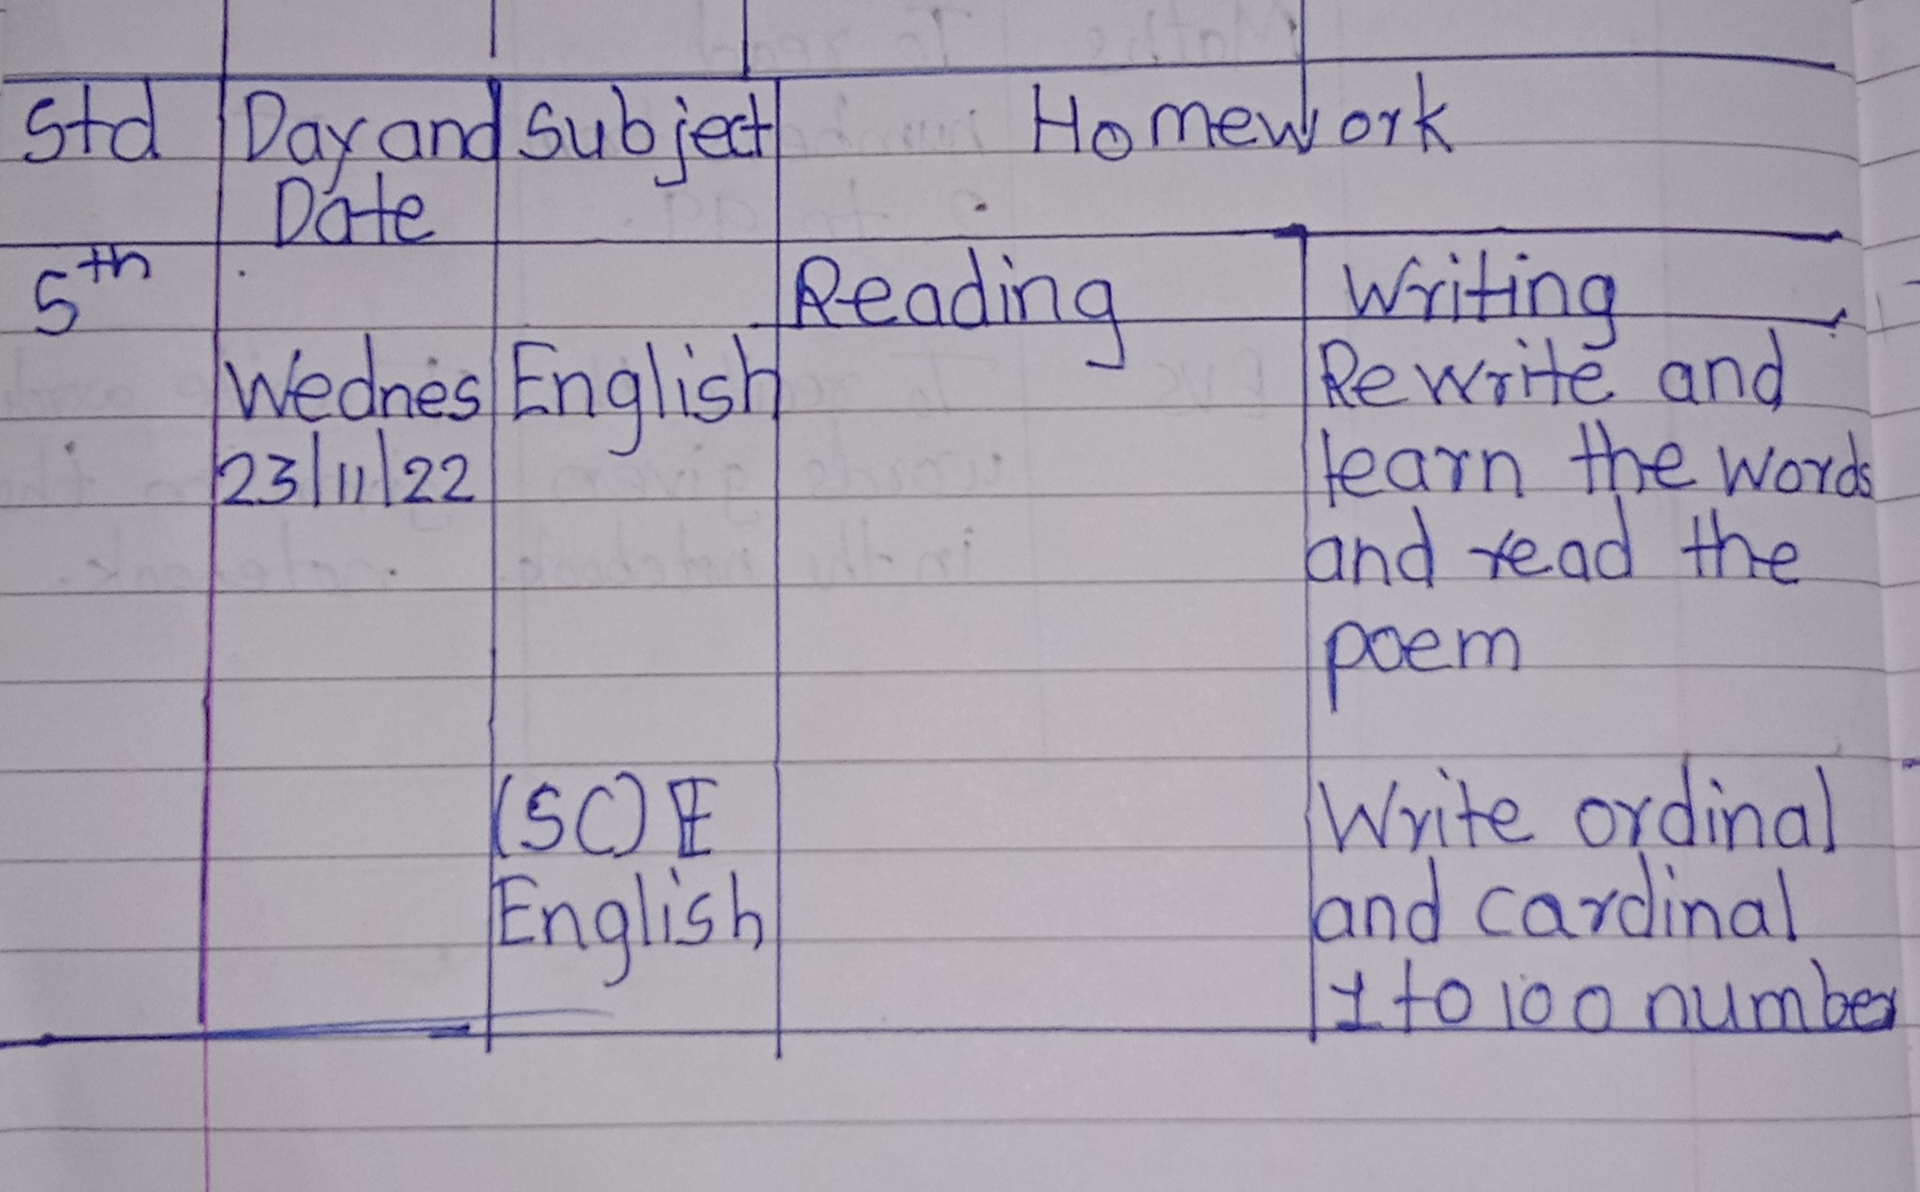 Std Day and Subject Homework
Date
5th Reading Writing
Wednes English Rewrite and
23/11/22 learn the words
and read the
poem
(SC) E Write ordinal
English and cardinal
1 to 100 number